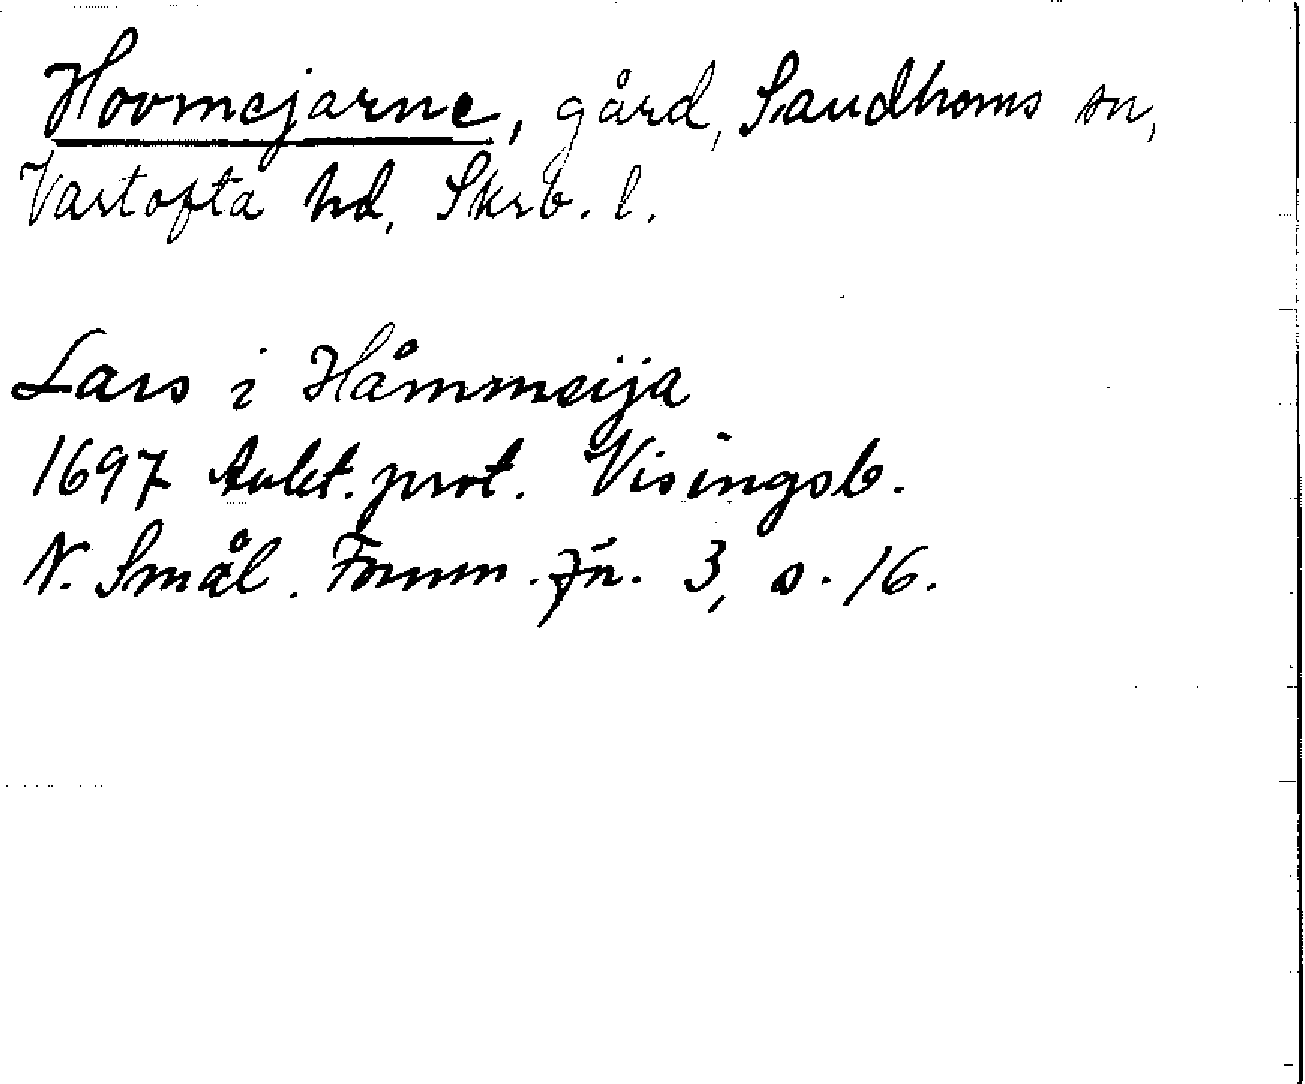 Hovmejarne, gård, Sandhems sn,
Vartofta hd, Skrb. l.
Lars i Håmmeija
1697 Aukt. prot. Visingsb.
N. Smål. Fornm. fn. 3, s. 16.